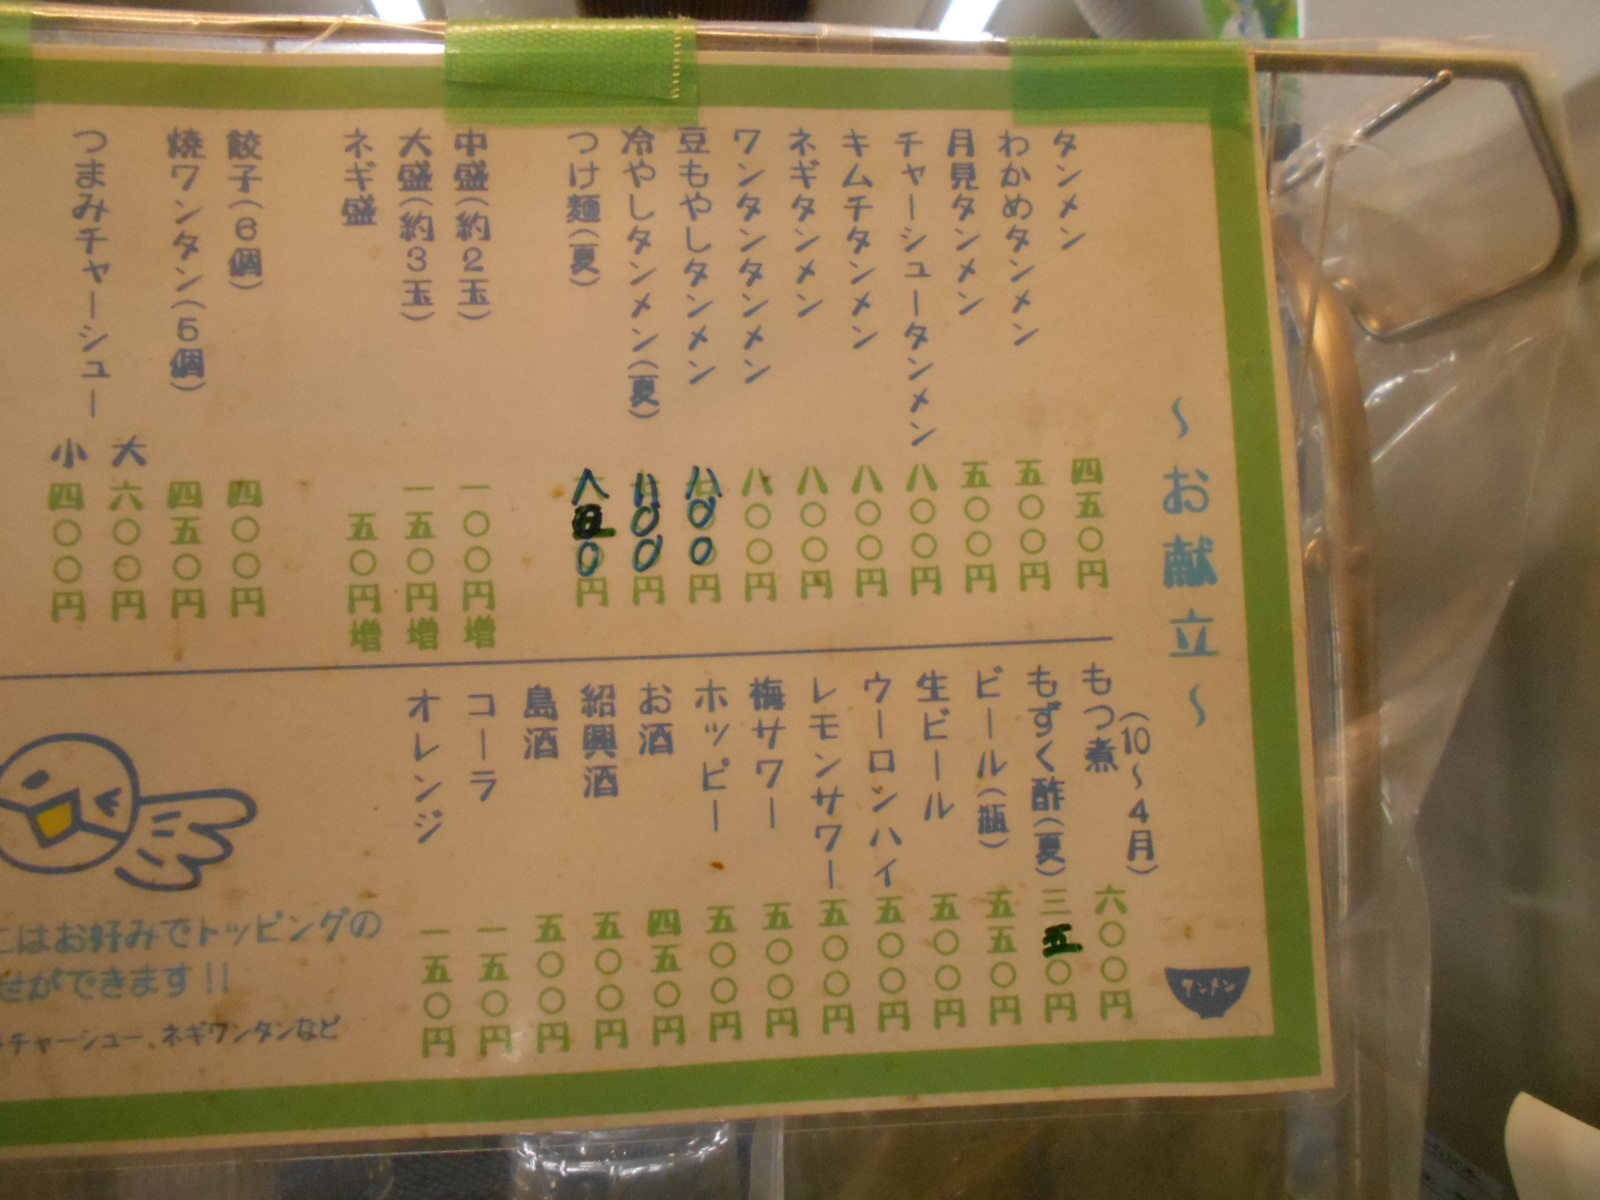 ～お献立～
タンメン 四五〇円
わかめタンメン 五〇〇円
月見タンメン 五〇〇円
チャーシュータンメン 八〇〇円
キムチタンメン 八〇〇円
ネギタンメン 八〇〇円
ワンタンタンメン 八〇〇円
豆もやしタンメン 八〇〇円
冷やしタンメン(夏) 八〇〇円
つけ麺(夏) 八五〇円
中盛(約2玉) 一〇〇円増
大盛(約3玉) 一五〇円増
ネギ盛 五〇円増
餃子(6個) 四〇〇円
焼ワンタン(5個) 四五〇円
つまみチャーシュー
大 六〇〇円
小 四〇〇円
もつ煮(10～4月) 六〇〇円
もずく酢(夏) 三五〇円
ビール(瓶) 五五〇円
生ビール 五〇〇円
ウーロンハイ 五〇〇円
レモンサワー 五〇〇円
梅サワー 五〇〇円
ホッピー 五〇〇円
お酒 四五〇円
紹興酒 五〇〇円
島酒 五〇〇円
コーラ 一五〇円
オレンジ 一五〇円
はお好みでトッピングの
せができます!!
チャーシュー、ネギワンタンなど
タンメン